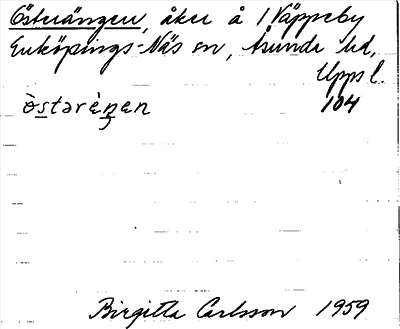 Österängen, åker å 1 Väppeby
Enköpings-Näs sn, Åsunda hd,
Upps l.
ò̀stəréŋen 104
Birgitta Carlsson 1959